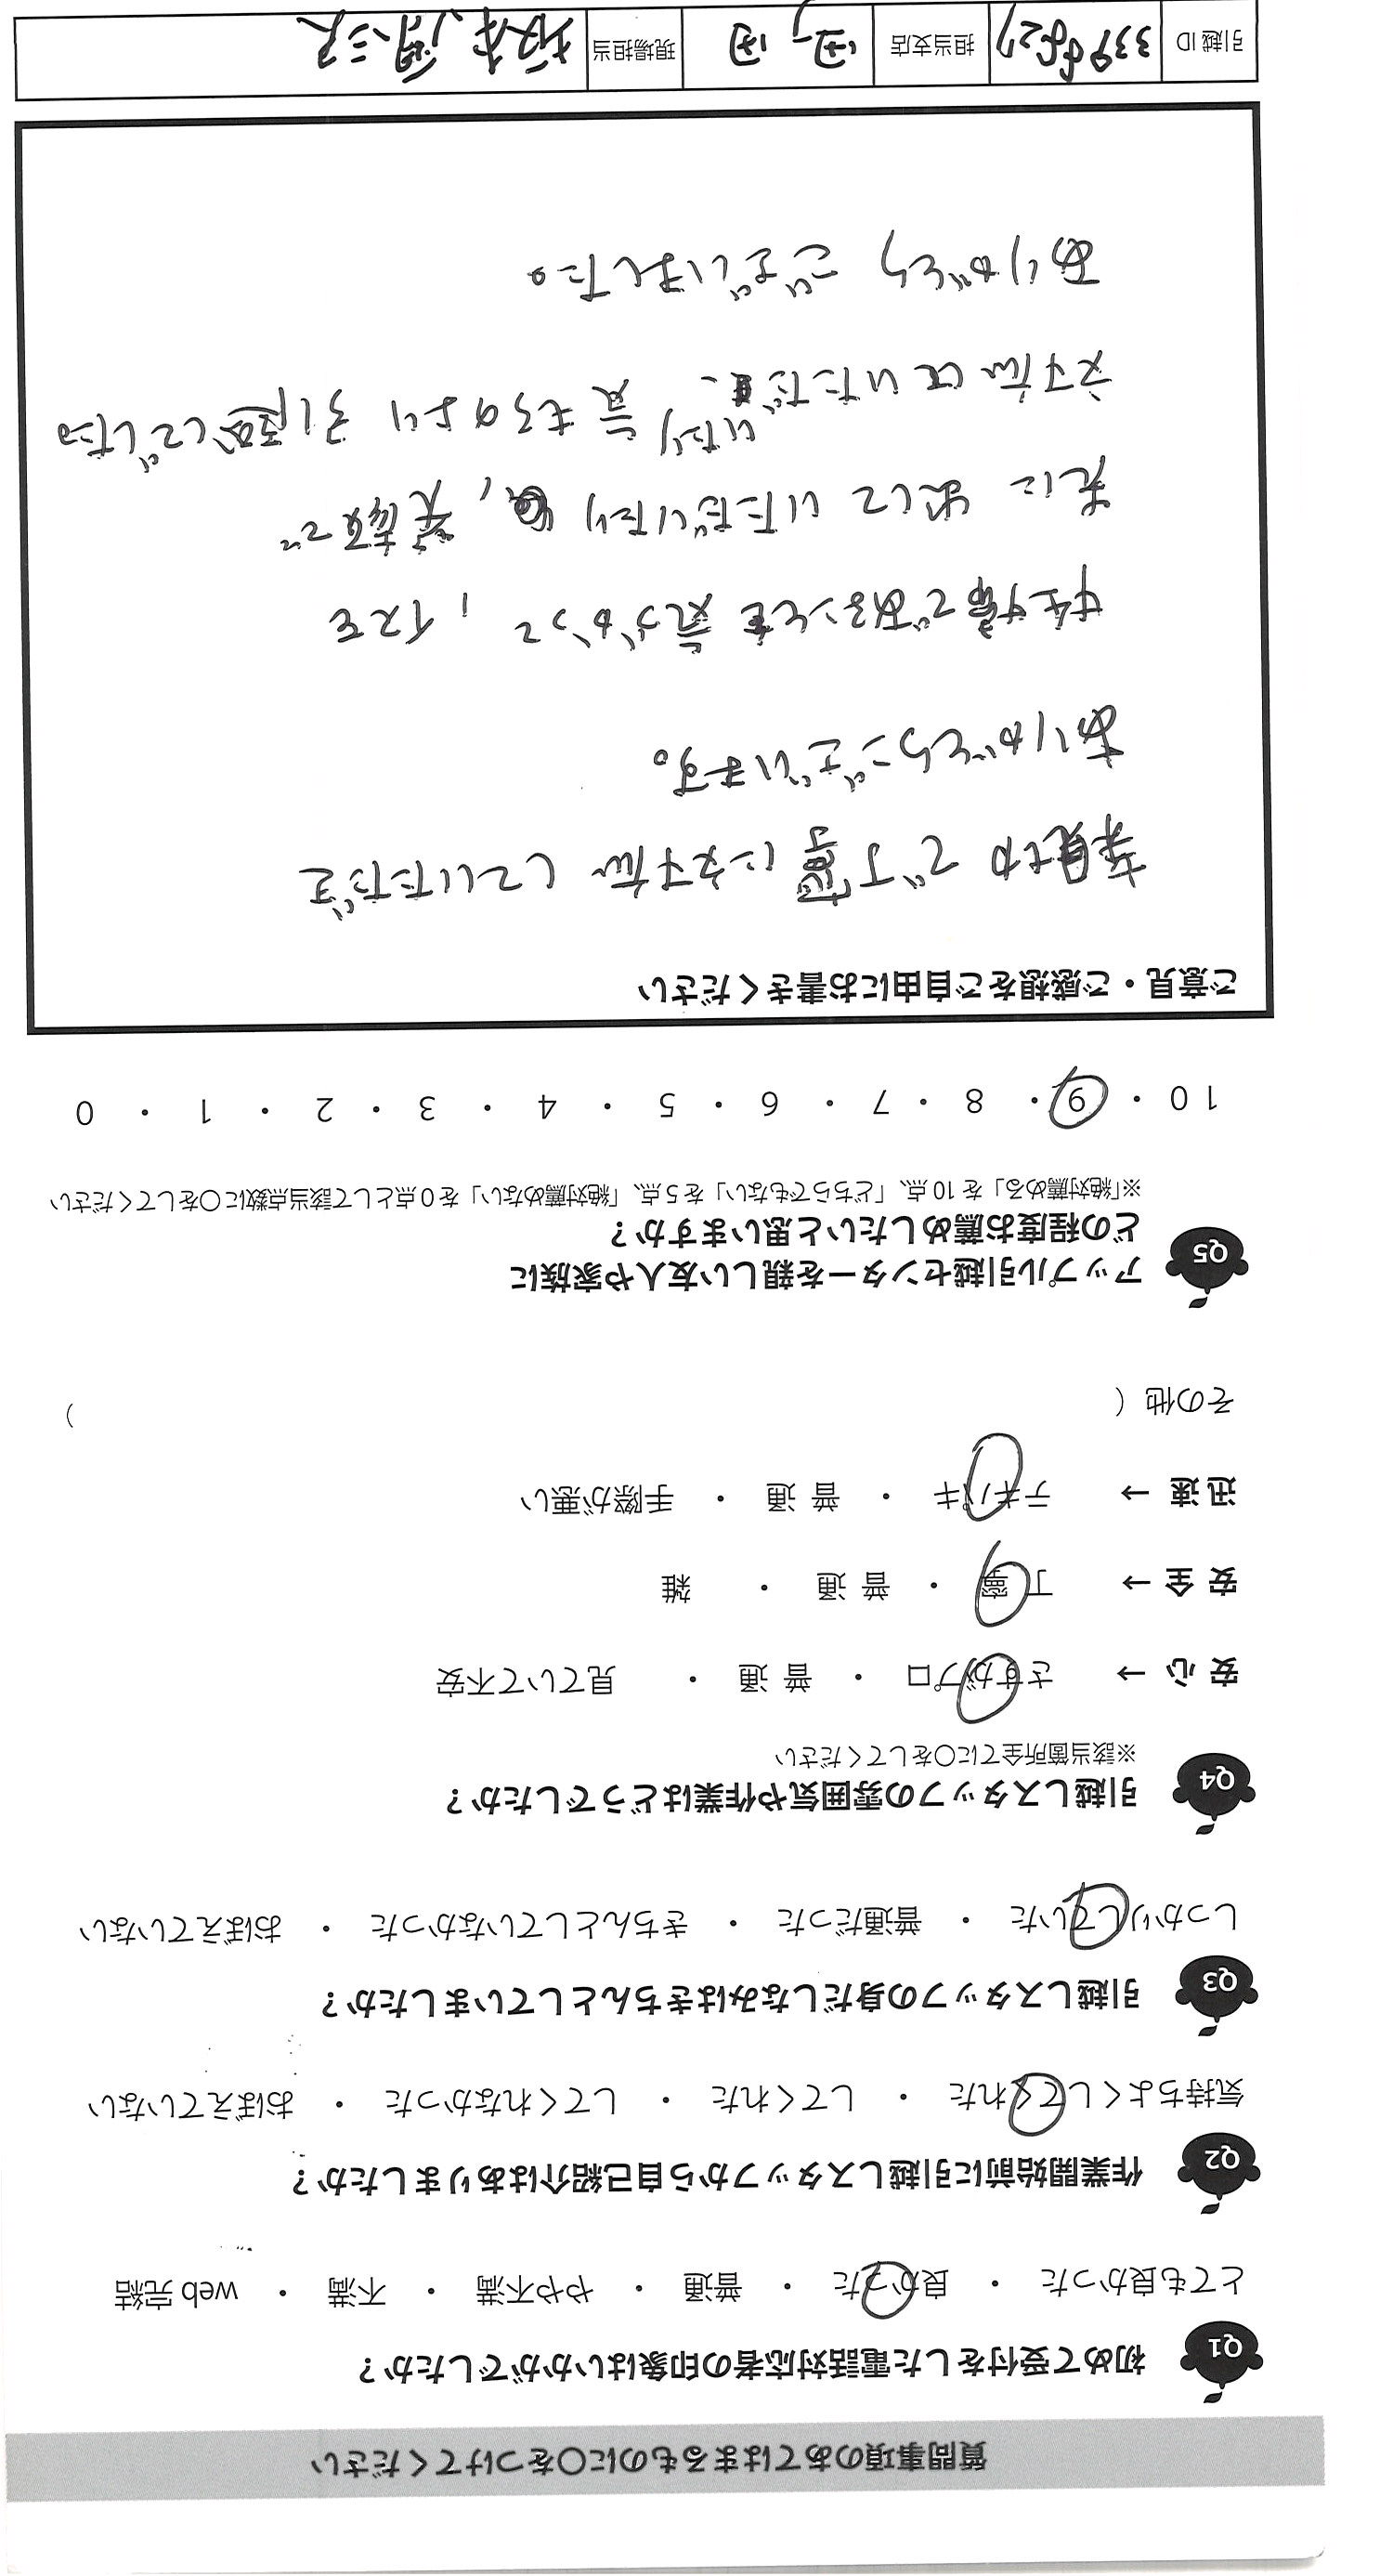 質問事項のあてはまるものに○をつけてください
Q1 初めて受付をした電話対応者の印象はいかがでしたか?
とても良かった ・ 良かった ・ 普通 ・ やや不満 ・ 不満 ・ web 完結
Q2 作業開始前に引越しスタッフから自己紹介はありましたか?
気持ちよくしてくれた ・ してくれた ・ してくれなかった ・ おぼえていない
Q3 引越しスタッフの身だしなみはきちんとしていましたか?
しっかりしていた ・ 普通だった ・ きちんとしていなかった ・ おぼえていない
Q4 引越しスタッフの雰囲気や作業はどうでしたか?
※該当箇所全てに○をしてください
安 心 → さすがプロ ・ 普 通 ・ 見ていて不安
安 全 → 丁 寧 ・ 普 通 ・ 雑
迅 速 → テキパキ ・ 普 通 ・ 手際が悪い
その他 ( )
Q5 アップル引越センターを親しい友人や家族に
どの程度お薦めしたいと思いますか?
※「絶対薦める」を 10 点、「どちらでもない」を 5 点、「絶対薦めない」を 0 点として該当点数に○をしてください
10 ・ 9 ・ 8 ・ 7 ・ 6 ・ 5 ・ 4 ・ 3 ・ 2 ・ 1 ・ 0
ご意見・ご感想をご自由にお書きください
で丁寧に対応していただき
ありがとうございます。
妊婦であることを気づかって、イスを
先に出していただいたり、笑顔で
対応していただき、
いたり 思 もろのより 引越しでした
ありがとうございました。
引越 ID 担当支店 現場担当